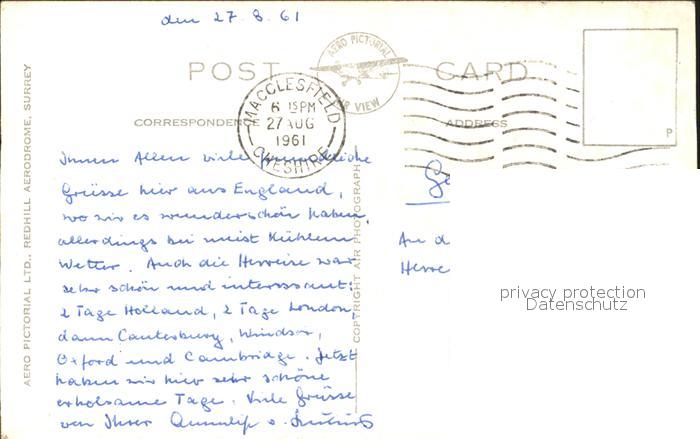 den 27.8.61
POST CARD
AERO PICTORIAL
AIR VIEW
MACCLESFIELD
6 15 PM
27 AUG
1961
CHESHIRE
CORRESPONDENCE
ADDRESS
P
Ihnen Allen viele freundliche
Grüsse hier aus England,
wo wir es wunderschön haben,
allerdings bei meist kühlem
Wetter. Auch die Herreise war
sehr schön und interessant:
2 Tage Holland, 2 Tage London,
dann Canterbury, Windsor,
Oxford und Cambridge. Jetzt
haben wir hier sehr schöne
erholsame Tage. Viele Grüsse
von Ihrer
An d
Herre
AERO PICTORIAL LTD., REDHILL AERODROME, SURREY
COPYRIGHT AIR PHOTOGRAPH
privacy protection
Datenschutz